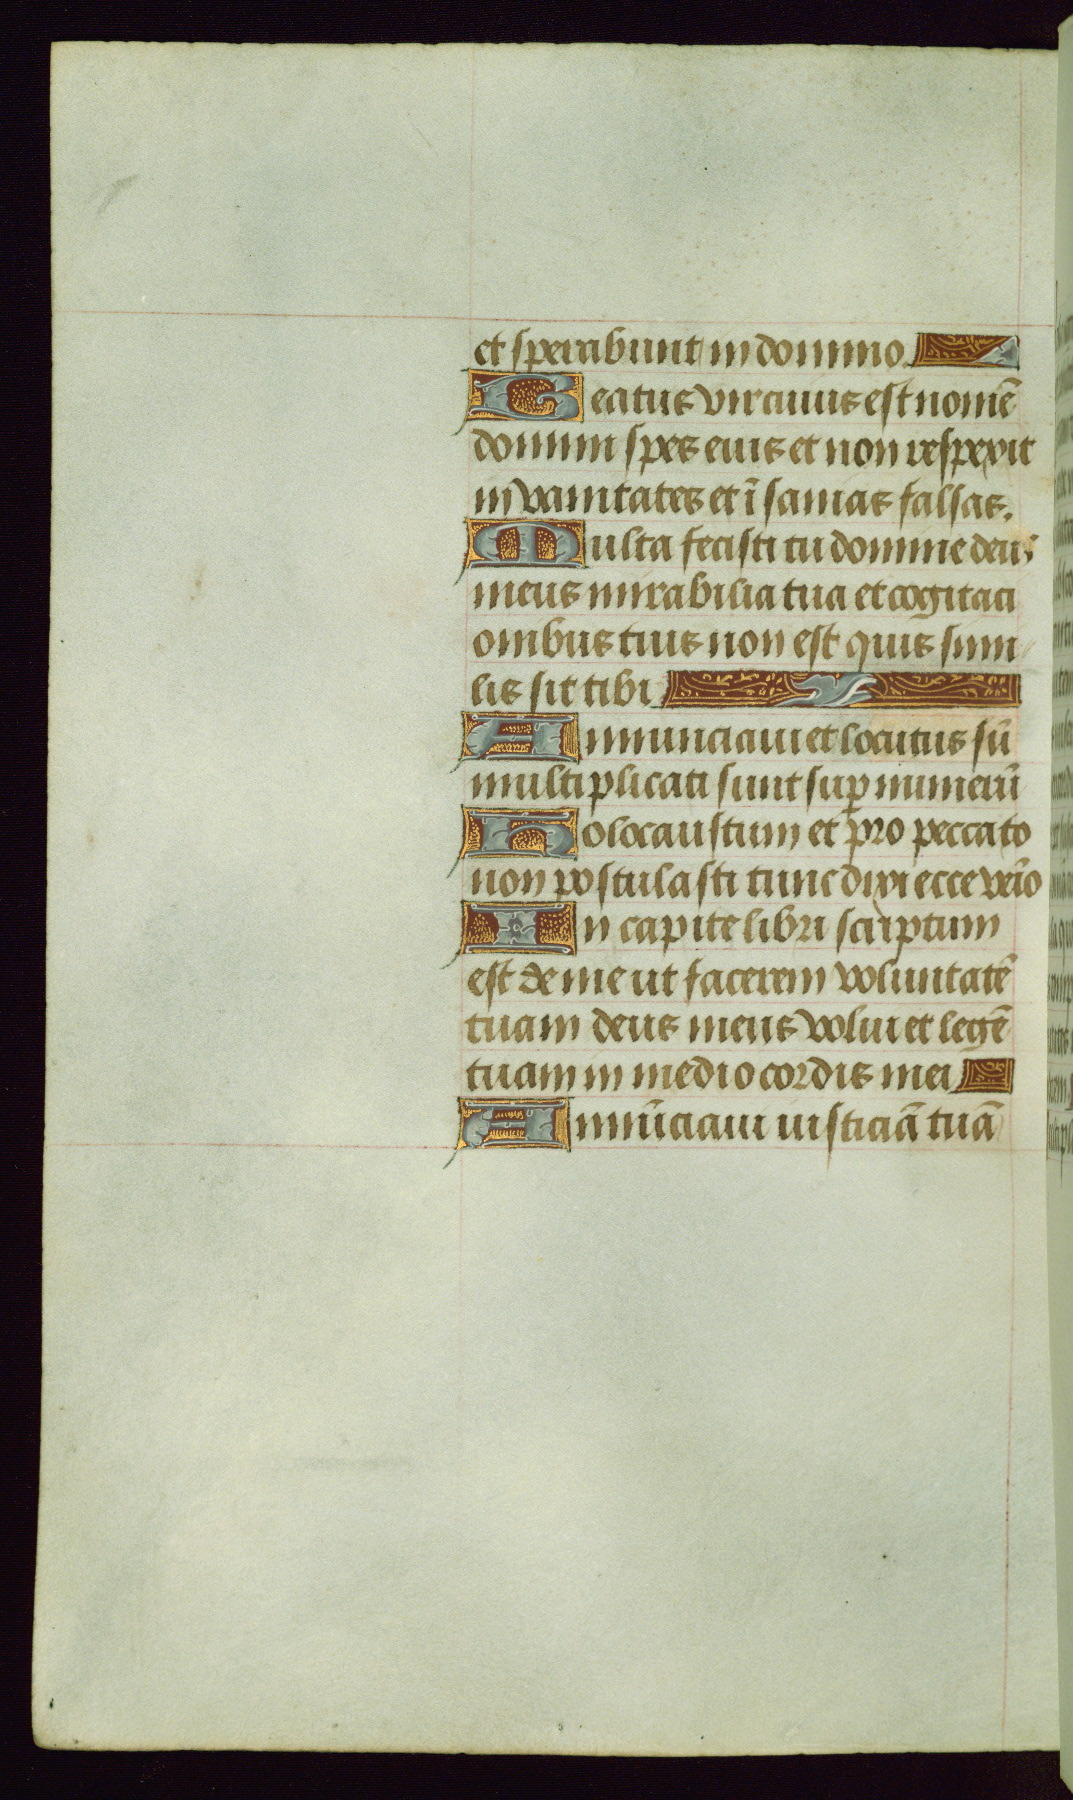 et sperabunt in domino.
Beatus vir cuius est nomē
domini spes eius et non respexit
in vanitates et ī sanias falsas.
Multa fecisti tu domine deus
meus mirabilia tua et cogitaci
onibus tuis non est quis simi
lis sit tibi
Annunciaui et locutus sū
multiplicati sunt sup numerū
Holocaustum et pro peccato
non postulasti tunc dixi ecce veīo
In capite libri scriptum
est de me ut facerem voluntatē
tuam deus meus volui et legē
tuam in medio cordis mei
Annūciaui iusticiā tuā